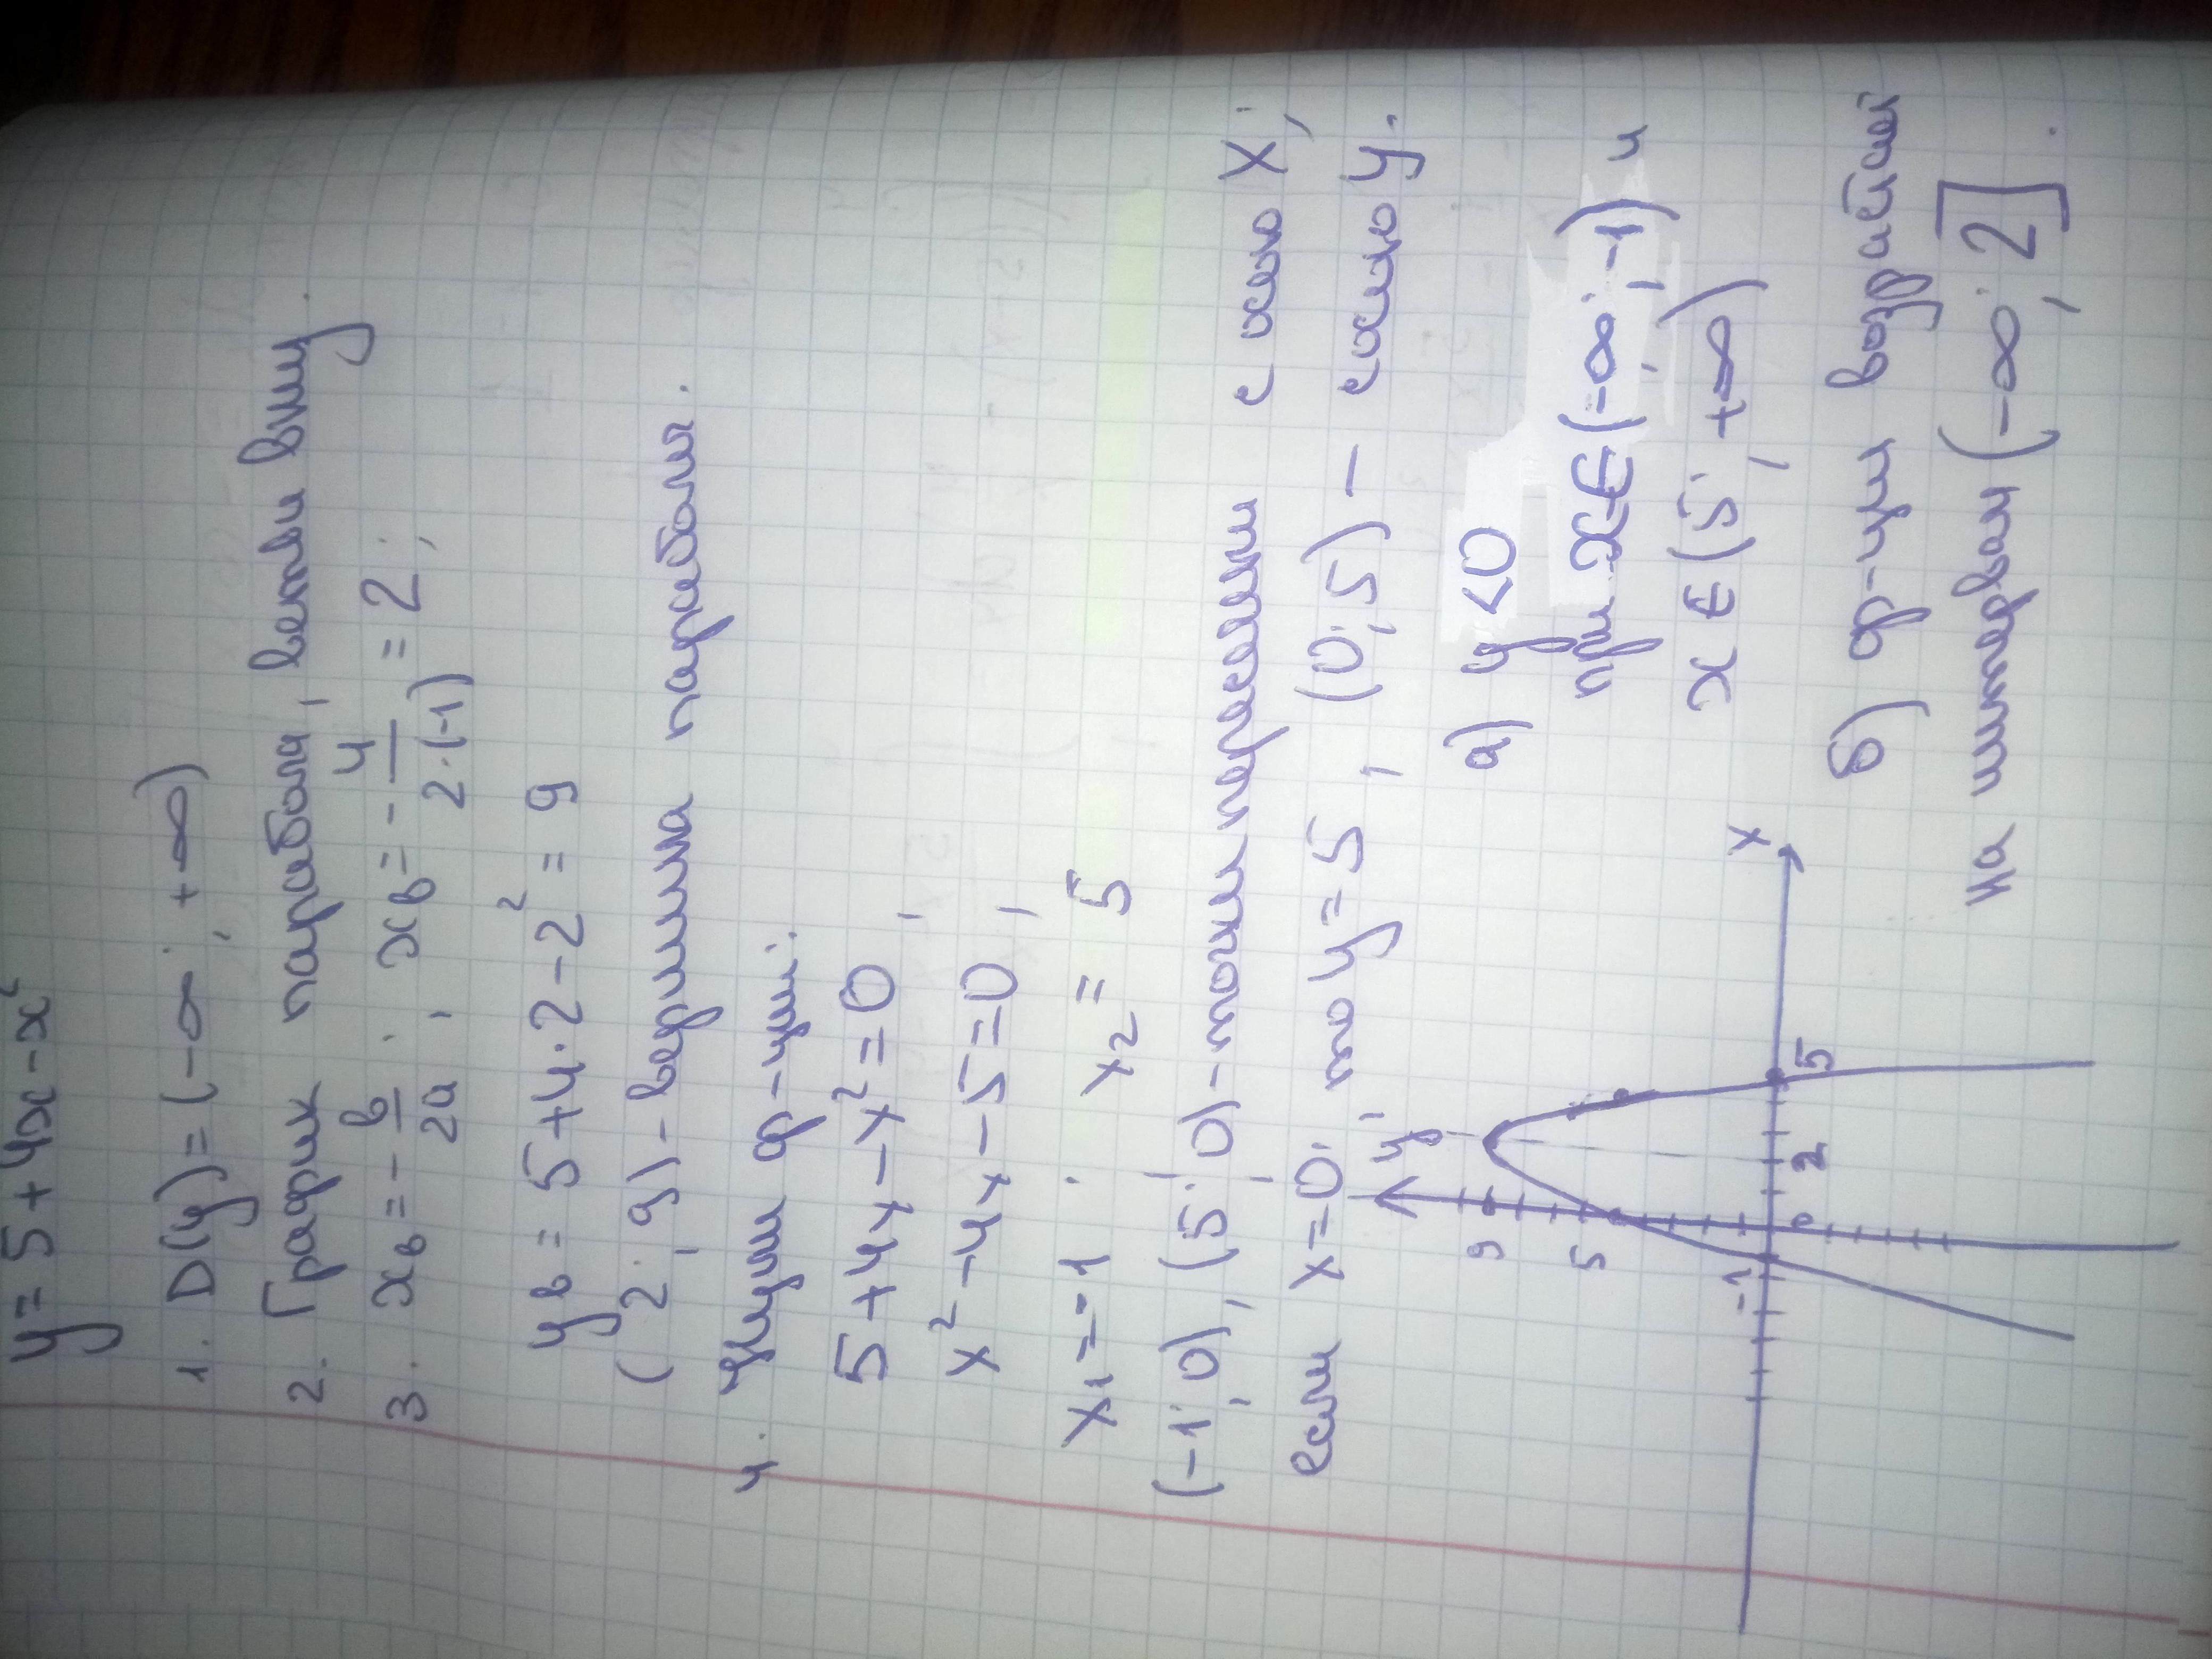 y = 5 + 4x - x²
1. D(y) = (-∞; +∞)
2. График парабола, ветви вниз.
3. xв = - в/2a; xв = - 4/2·(-1) = 2;
yв = 5 + 4·2 - 2² = 9
(2; 9) - вершина параболы.
4. Нули ф-ции:
5 + 4x - x² = 0;
x² - 4x - 5 = 0;
x₁ = -1; x₂ = 5
(-1; 0), (5; 0) - точки пересечения с осью X;
если x = 0; то y = 5, (0; 5) - с осью y.
y
9
5
-1
0
2
5
x
а) y < 0
при x ∈ (-∞; -1) и
x ∈ (5; +∞)
б) ф-ция возрастает
на интервале (-∞; 2].